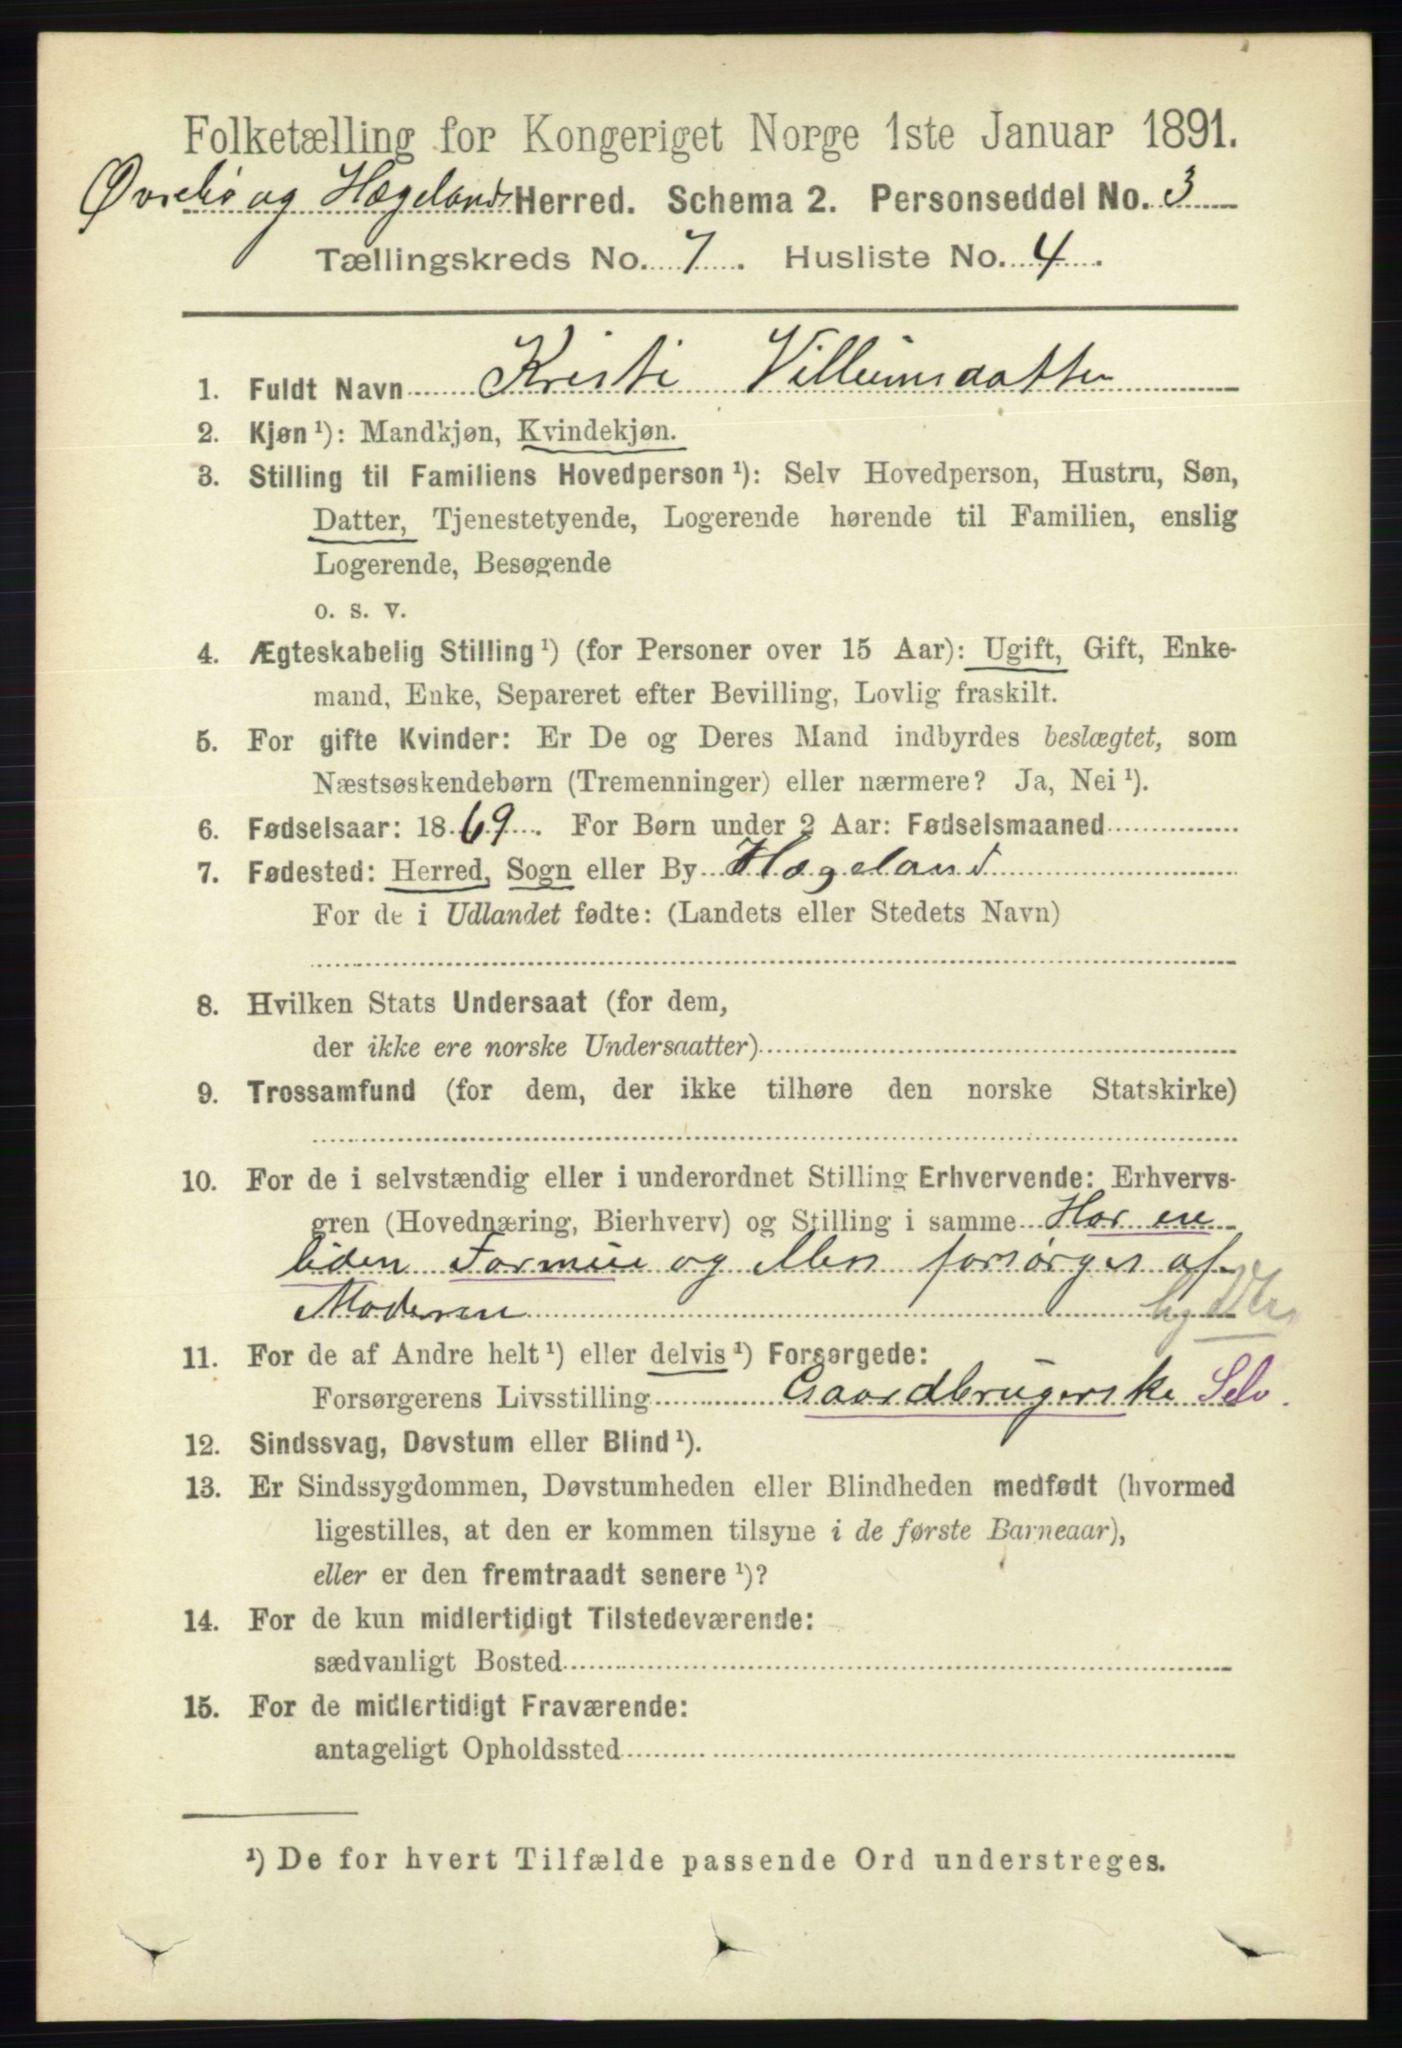 Folketælling for Kongeriget Norge 1ste Januar 1891.
Øvrebø og Hægelands Herred. Schema 2. Personseddel No. 3
Tællingskreds No. 7. Husliste No. 4.
1. Fuldt Navn Kristi Villumsdatter
2. Kjøn ¹): Mandkjøn, Kvindekjøn.
3. Stilling til Familiens Hovedperson ¹): Selv Hovedperson, Hustru, Søn,
Datter, Tjenestetyende, Logerende hørende til Familien, enslig
Logerende, Besøgende
o. s. v.
4. Ægteskabelig Stilling ¹) (for Personer over 15 Aar): Ugift, Gift, Enke-
mand, Enke, Separeret efter Bevilling, Lovlig fraskilt.
5. For gifte Kvinder: Er De og Deres Mand indbyrdes beslægtet, som
Næstsøskendebørn (Tremenninger) eller nærmere? Ja, Nei ¹).
6. Fødselsaar: 1869. For Børn under 2 Aar: Fødselsmaaned
7. Fødested: Herred, Sogn eller By Hægeland
For de i Udlandet fødte: (Landets eller Stedets Navn)
8. Hvilken Stats Undersaat (for dem,
der ikke ere norske Undersaatter)
9. Trossamfund (for dem, der ikke tilhøre den norske Statskirke)
10. For de i selvstændig eller i underordnet Stilling Erhvervende: Erhvervs-
gren (Hovednæring, Bierhverv) og Stilling i samme Har en
liden Formue og Men forsørges af
Moderen
11. For de af Andre helt ¹) eller delvis ¹) Forsørgede:
Forsørgerens Livsstilling Gaardbrugerske Selv.
12. Sindssvag, Døvstum eller Blind ¹).
13. Er Sindssygdommen, Døvstumheden eller Blindheden medfødt (hvormed
ligestilles, at den er kommen tilsyne i de første Barneaar),
eller er den fremtraadt senere ¹)?
14. For de kun midlertidigt Tilstedeværende:
sædvanligt Bosted
15. For de midlertidigt Fraværende:
antageligt Opholdssted
¹) De for hvert Tilfælde passende Ord understreges.